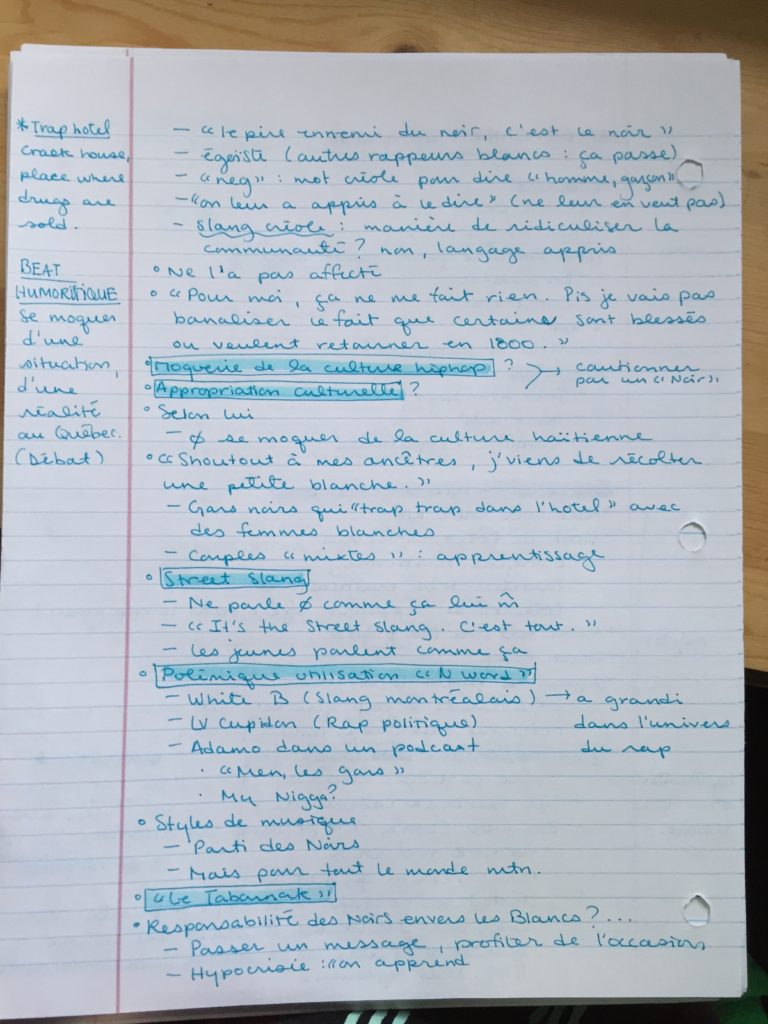 *Trap hotel
Crack house,
place where
drugs are
sold.
BEAT
HUMORITIQUE
Se moquer
d'une
situation,
d'une
réalité
au Québec.
(Débat)
– « le pire ennemi du noir, c'est le noir »
– égoïste (autres rappeurs blancs : ça passe)
– « neg » : mot créole pour dire « homme, garçon »
– « on leur a appris à le dire » (ne leur en veut pas)
– Slang créole : manière de ridiculiser la
communauté ? non, langage appris
• Ne l'a pas affecté
• « Pour moi, ça ne me fait rien. Pis je vais pas
banaliser le fait que certains sont blessés
ou veulent retourner en 1800. »
• Moquerie de la culture hiphop ?
• Appropriation culturelle ?
cautionner
par un « Noir »
• Selon lui
– ∅ se moquer de la culture haïtienne
• « Shoutout à mes ancêtres, j'viens de récolter
une petite blanche. »
– Gars noirs qui "trap trap dans l'hotel" avec
des femmes blanches
– Couples « mixtes » : apprentissage
• Street Slang
– Ne parle ∅ comme ça lui m̂
– « It's the Street Slang. C'est tout. »
– Les jeunes parlent comme ça
• Polémique utilisation « N word »
– White B (Slang montréalais) → a grandi
– LV Cupidon (Rap politique) dans l'univers
– Adamo dans un podcast du rap
· « Men, les gars »
· My Nigga?
• Styles de musique
– Parti des Noirs
– Mais pour tout le monde mtn.
• « Le Tabarnak »
• Responsabilité des Noirs envers les Blancs ?...
– Passer un message, profiter de l'occasion
– Hypocrisie : « on apprend